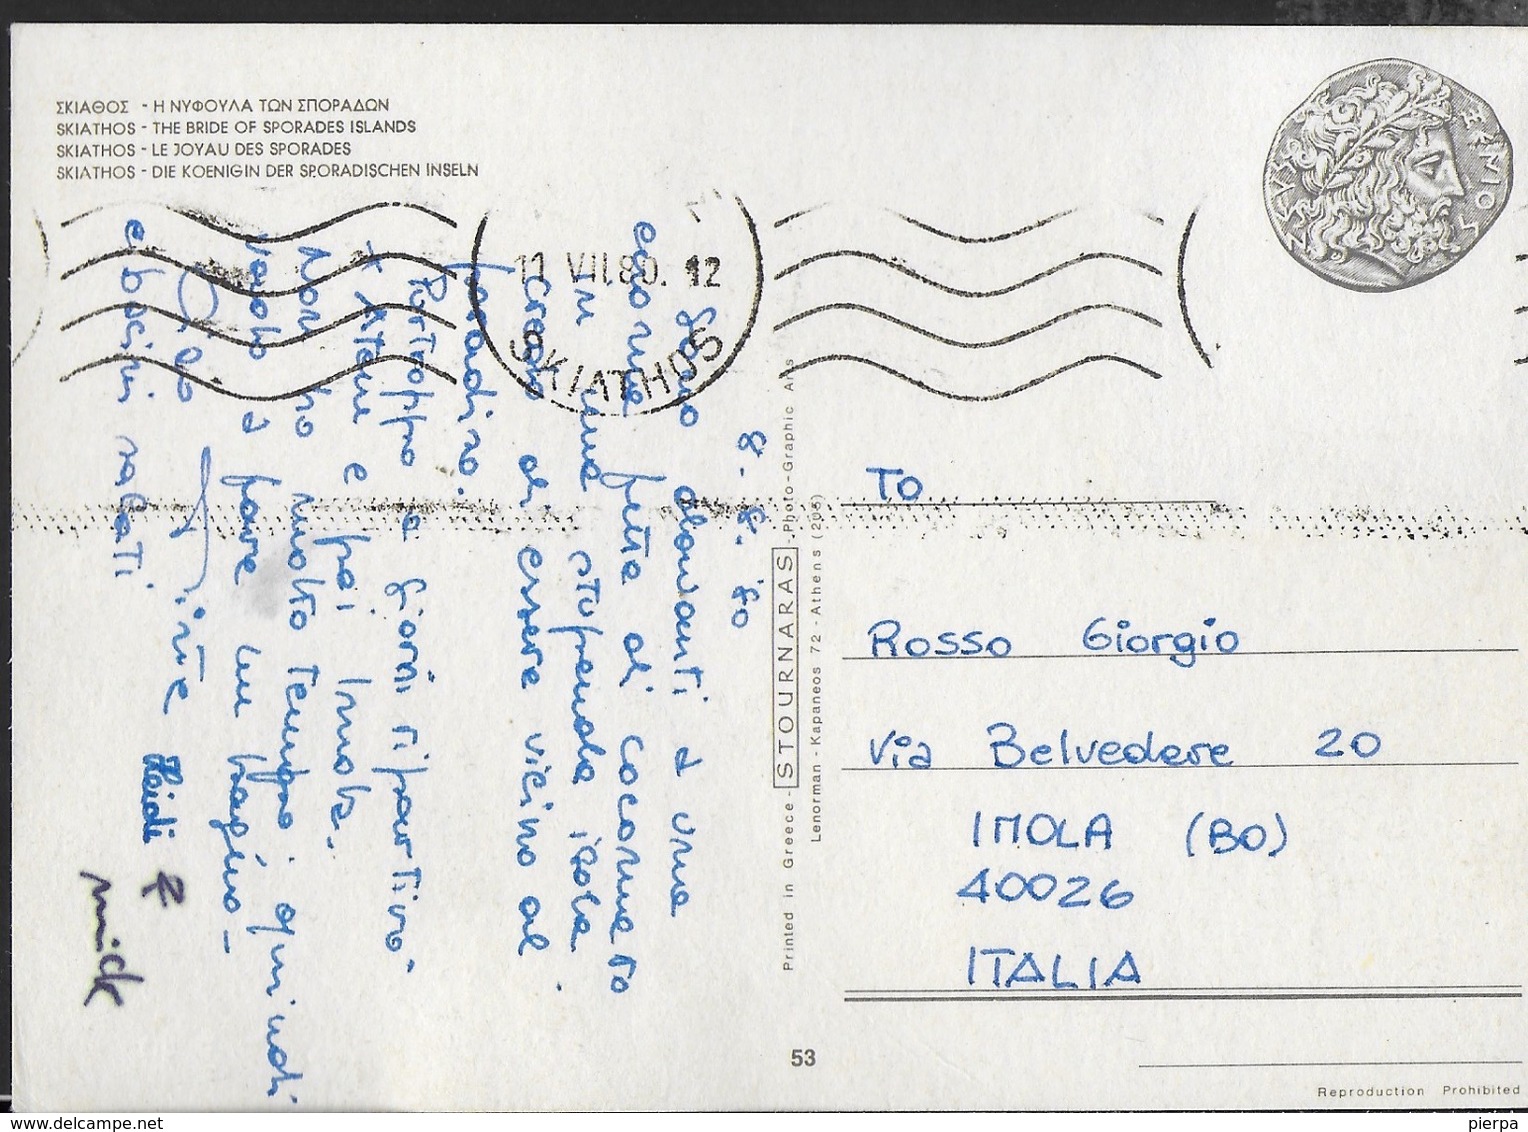 ΣΚΙΑΘΟΣ - Η ΝΥΦΟΥΛΑ ΤΩΝ ΣΠΟΡΑΔΩΝ
SKIATHOS - THE BRIDE OF SPORADES ISLANDS
SKIATHOS - LE JOYAU DES SPORADES
SKIATHOS - DIE KOENIGIN DER SPORADISCHEN INSELN
ΖΕΥΣ ΞΕΝΙΟΣ
11 VII.80. 12
SKIATHOS
8.8.80
sono davanti a una
enorme fetta di cocomero
in una stupenda isola
credo di essere vicino al
paradiso.
Purtroppo fra giorni ripartirò
x Atene e poi Imola.
Non ho molto tempo, quindi
vado a fare un bagno-
Ciao
Heidi
e bacini salati
mick
Printed in Greece - STOURNARAS - Photo-Graphic Arts
Lenorman - Kapaneos 72 - Athens (205)
TO
Rosso Giorgio
Via Belvedere 20
IMOLA (BO)
40026
ITALIA
53
Reproduction Prohibited
www.delcampe.net
pierpa